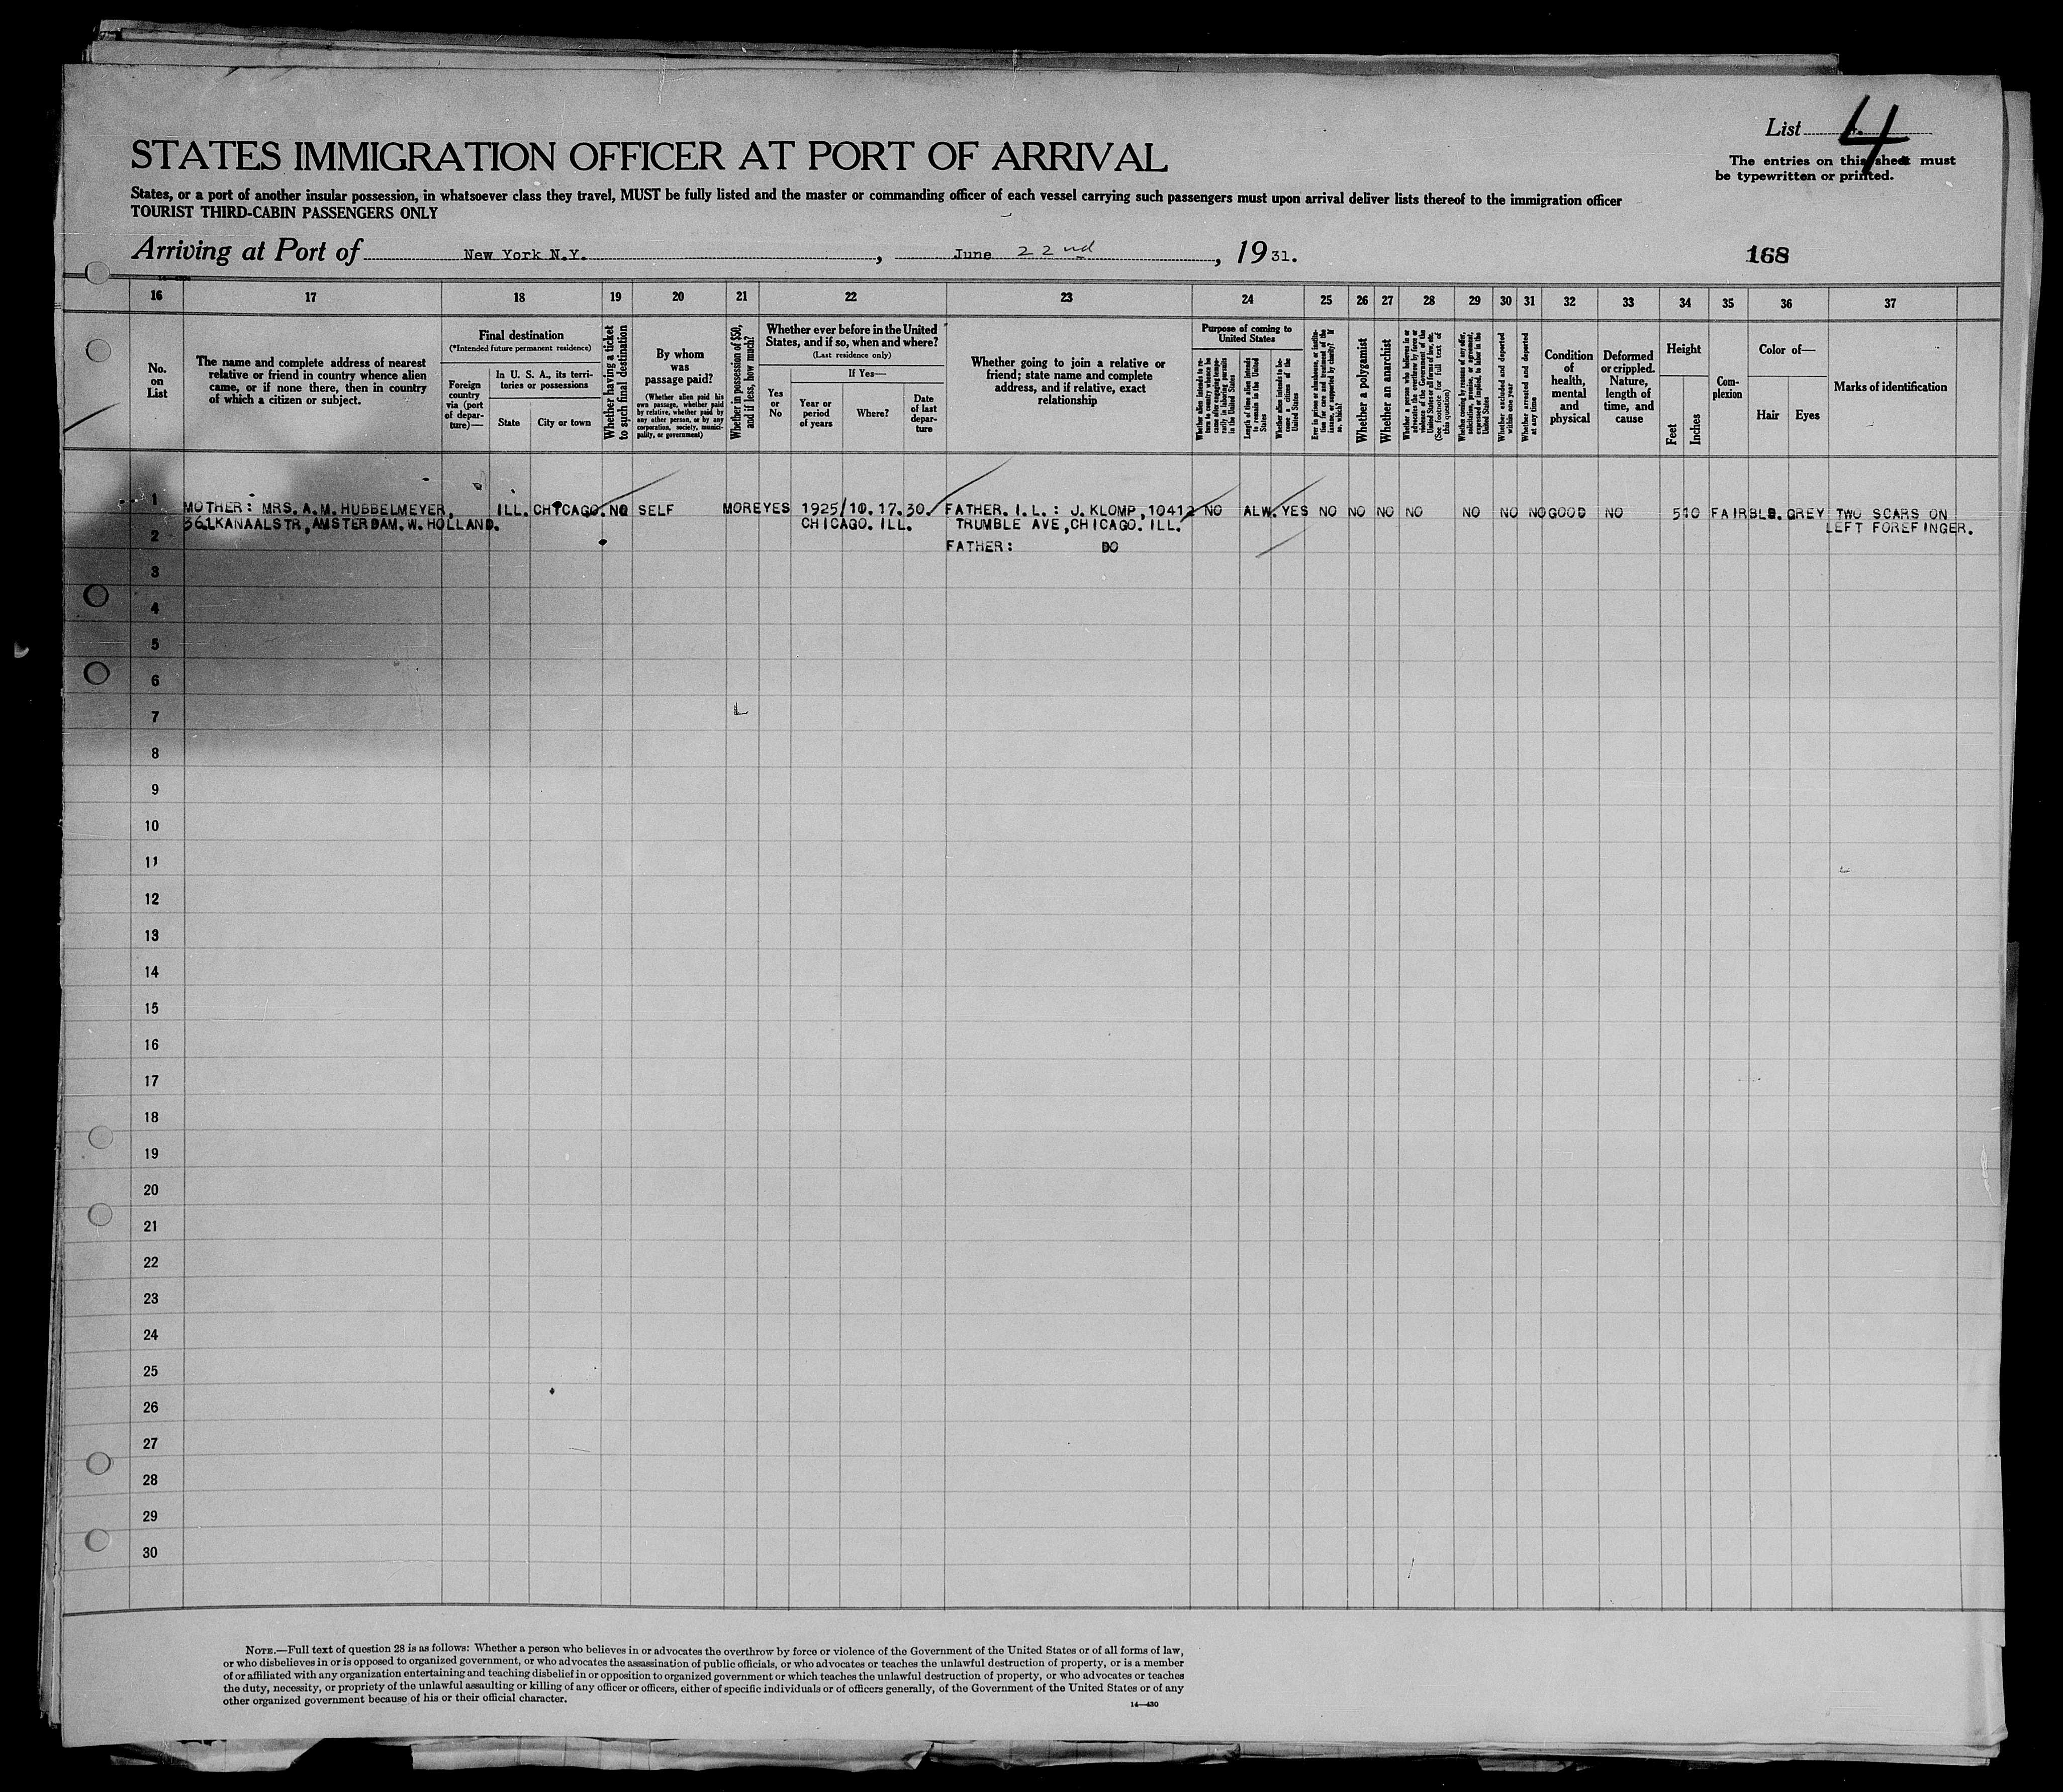 List 4
The entries on this sheet must
be typewritten or printed.
STATES IMMIGRATION OFFICER AT PORT OF ARRIVAL
States, or a port of another insular possession, in whatsoever class they travel, MUST be fully listed and the master or commanding officer of each vessel carrying such passengers must upon arrival deliver lists thereof to the immigration officer
TOURIST THIRD-CABIN PASSENGERS ONLY
Arriving at Port of New York N.Y. , June 22nd , 19 31.
168
16 17 18 19 20 21 22 23 24 25 26 27 28 29 30 31 32 33 34 35 36 37
No.
on
List
The name and complete address of nearest
relative or friend in country whence alien
came, or if none there, then in country
of which a citizen or subject.
Final destination
(*Intended future permanent residence)
Foreign
country
via (port
of depar-
ture)—
In U. S. A., its terri-
tories or possessions
State
City or town
Whether having a ticket
to such final destination
By whom
was
passage paid?
(Whether alien paid his
own passage, whether paid
by relative, whether paid by
any other person, or by any
corporation, society, munici-
pality, or government)
Whether in possession of $50,
and if less, how much?
Whether ever before in the United
States, and if so, when and where?
(Last residence only)
Yes
or
No
If Yes—
Year or
period
of years
Where?
Date
of last
depar-
ture
Whether going to join a relative or
friend; state name and complete
address, and if relative, exact
relationship
Purpose of coming to
United States
Whether alien intends to re-
turn to country whence he
came after engaging tempo-
rarily in laboring pursuits
in the United States
Length of time alien intends
to remain in the United
States
Whether alien intends to be-
come a citizen of the
United States
Ever in prison or almshouse, or institu-
tion for care and treatment of the
insane, or supported by charity? If
so, which?
Whether a polygamist
Whether an anarchist
Whether a person who believes in or
advocates the overthrow by force or
violence of the Government of the
United States or all forms of law, etc.
(See footnote for full text of
this question)
Whether coming by reason of any offer,
solicitation, promise, or agreement,
expressed or implied, to labor in the
United States
Whether excluded and deported
within one year
Whether arrested and deported
at any time
Condition
of
health,
mental
and
physical
Deformed
or crippled.
Nature,
length of
time, and
cause
Height
Feet
Inches
Com-
plexion
Color of—
Hair
Eyes
Marks of identification
1 MOTHER: MRS. A.M. HUBBELMEYER, ILL. CHICAGO. NO SELF MORE YES 1925/10.17.30. FATHER. I.L.: J. KLOMP, 10412 NO ALW. YES NO NO NO NO NO NO NO GOOD NO 5 10 FAIR BLD. GREY TWO SCARS ON
361KANAALSTR, AMSTERDAM. W. HOLLAND. CHICAGO. ILL. TRUMBLE AVE, CHICAGO. ILL. LEFT FOREFINGER.
2 FATHER: DO
3
4
5
6
7
8
9
10
11
12
13
14
15
16
17
18
19
20
21
22
23
24
25
26
27
28
29
30
NOTE.—Full text of question 28 is as follows: Whether a person who believes in or advocates the overthrow by force or violence of the Government of the United States or of all forms of law,
or who disbelieves in or is opposed to organized government, or who advocates the assassination of public officials, or who advocates or teaches the unlawful destruction of property, or is a member
of or affiliated with any organization entertaining and teaching disbelief in or opposition to organized government or which teaches the unlawful destruction of property, or who advocates or teaches
the duty, necessity, or propriety of the unlawful assaulting or killing of any officer or officers, either of specific individuals or of officers generally, of the Government of the United States or of any
other organized government because of his or their official character.
14—430